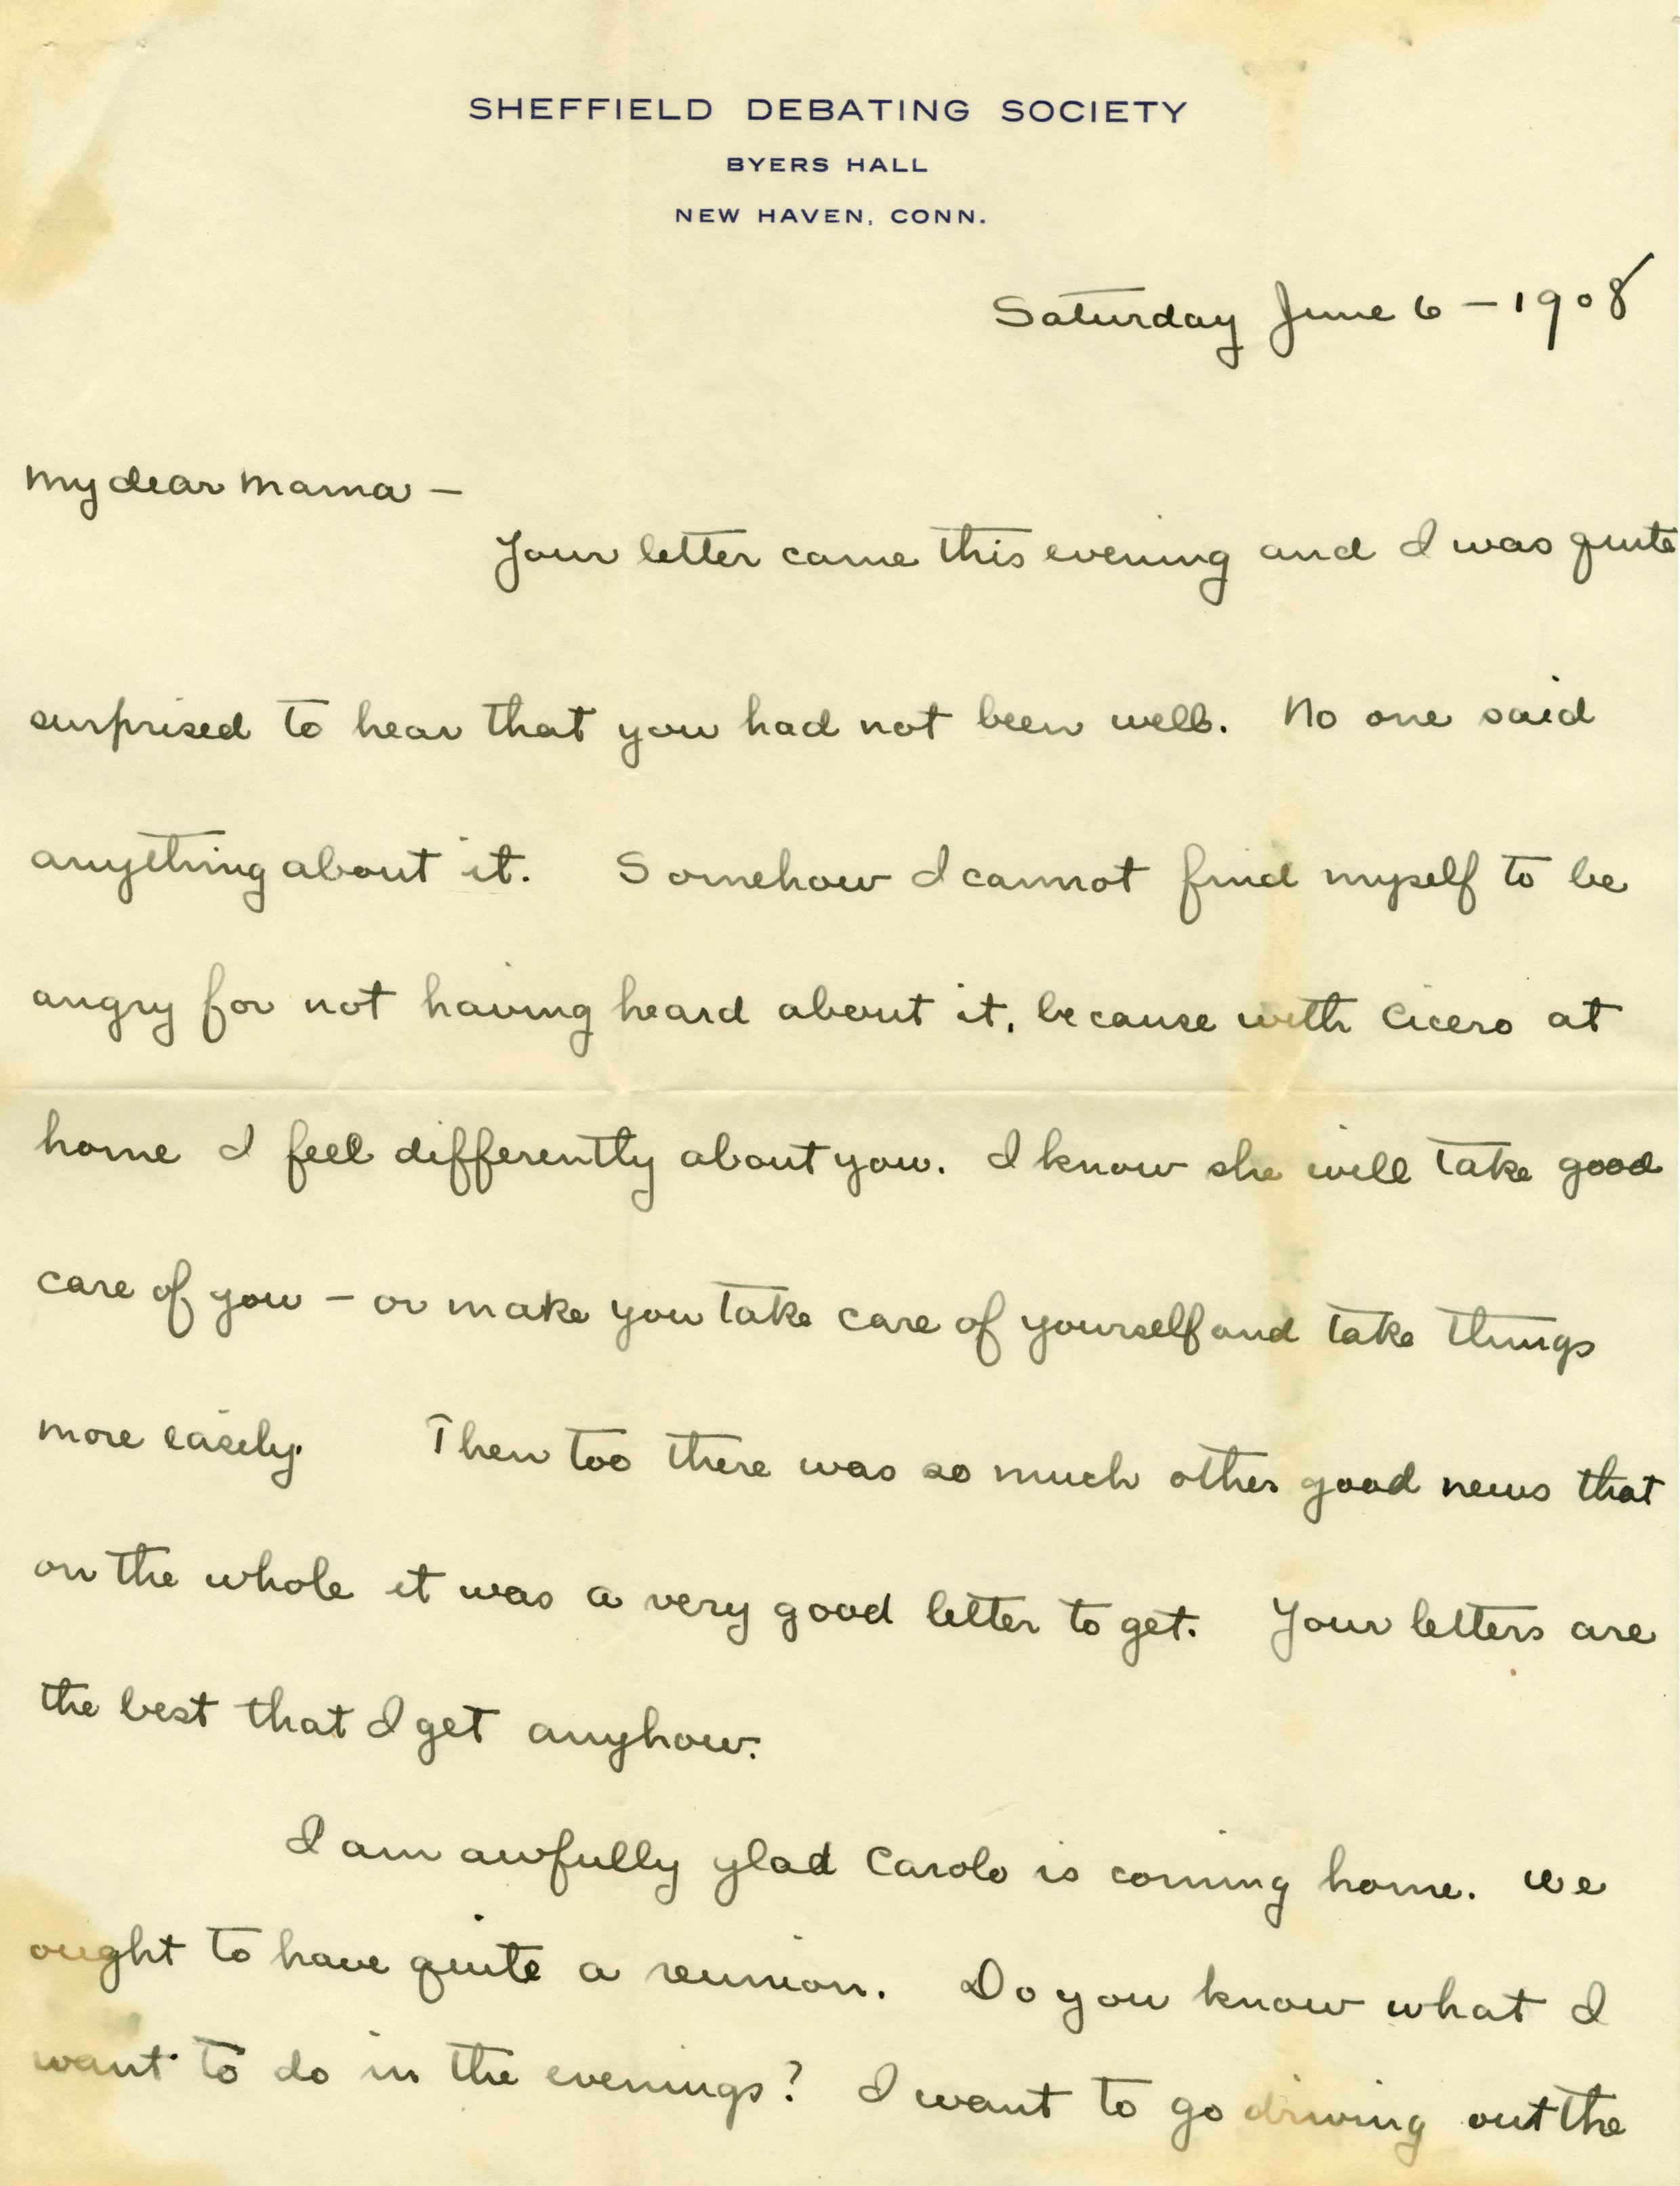 SHEFFIELD DEBATING SOCIETY
BYERS HALL
NEW HAVEN, CONN.
Saturday June 6 - 1908
My dear Mama -
Your letter came this evening and I was quite
surprised to hear that you had not been well. No one said
anything about it. Somehow I cannot find myself to be
angry for not having heard about it, because with Cicero at
home I feel differently about you. I know she will take good
care of you - or make you take care of yourself and take things
more easily. Then too there was so much other good news that
on the whole it was a very good letter to get. Your letters are
the best that I get anyhow.
I am awfully glad Carolo is coming home. We
ought to have quite a reunion. Do you know what I
want to do in the evenings? I want to go driving out the